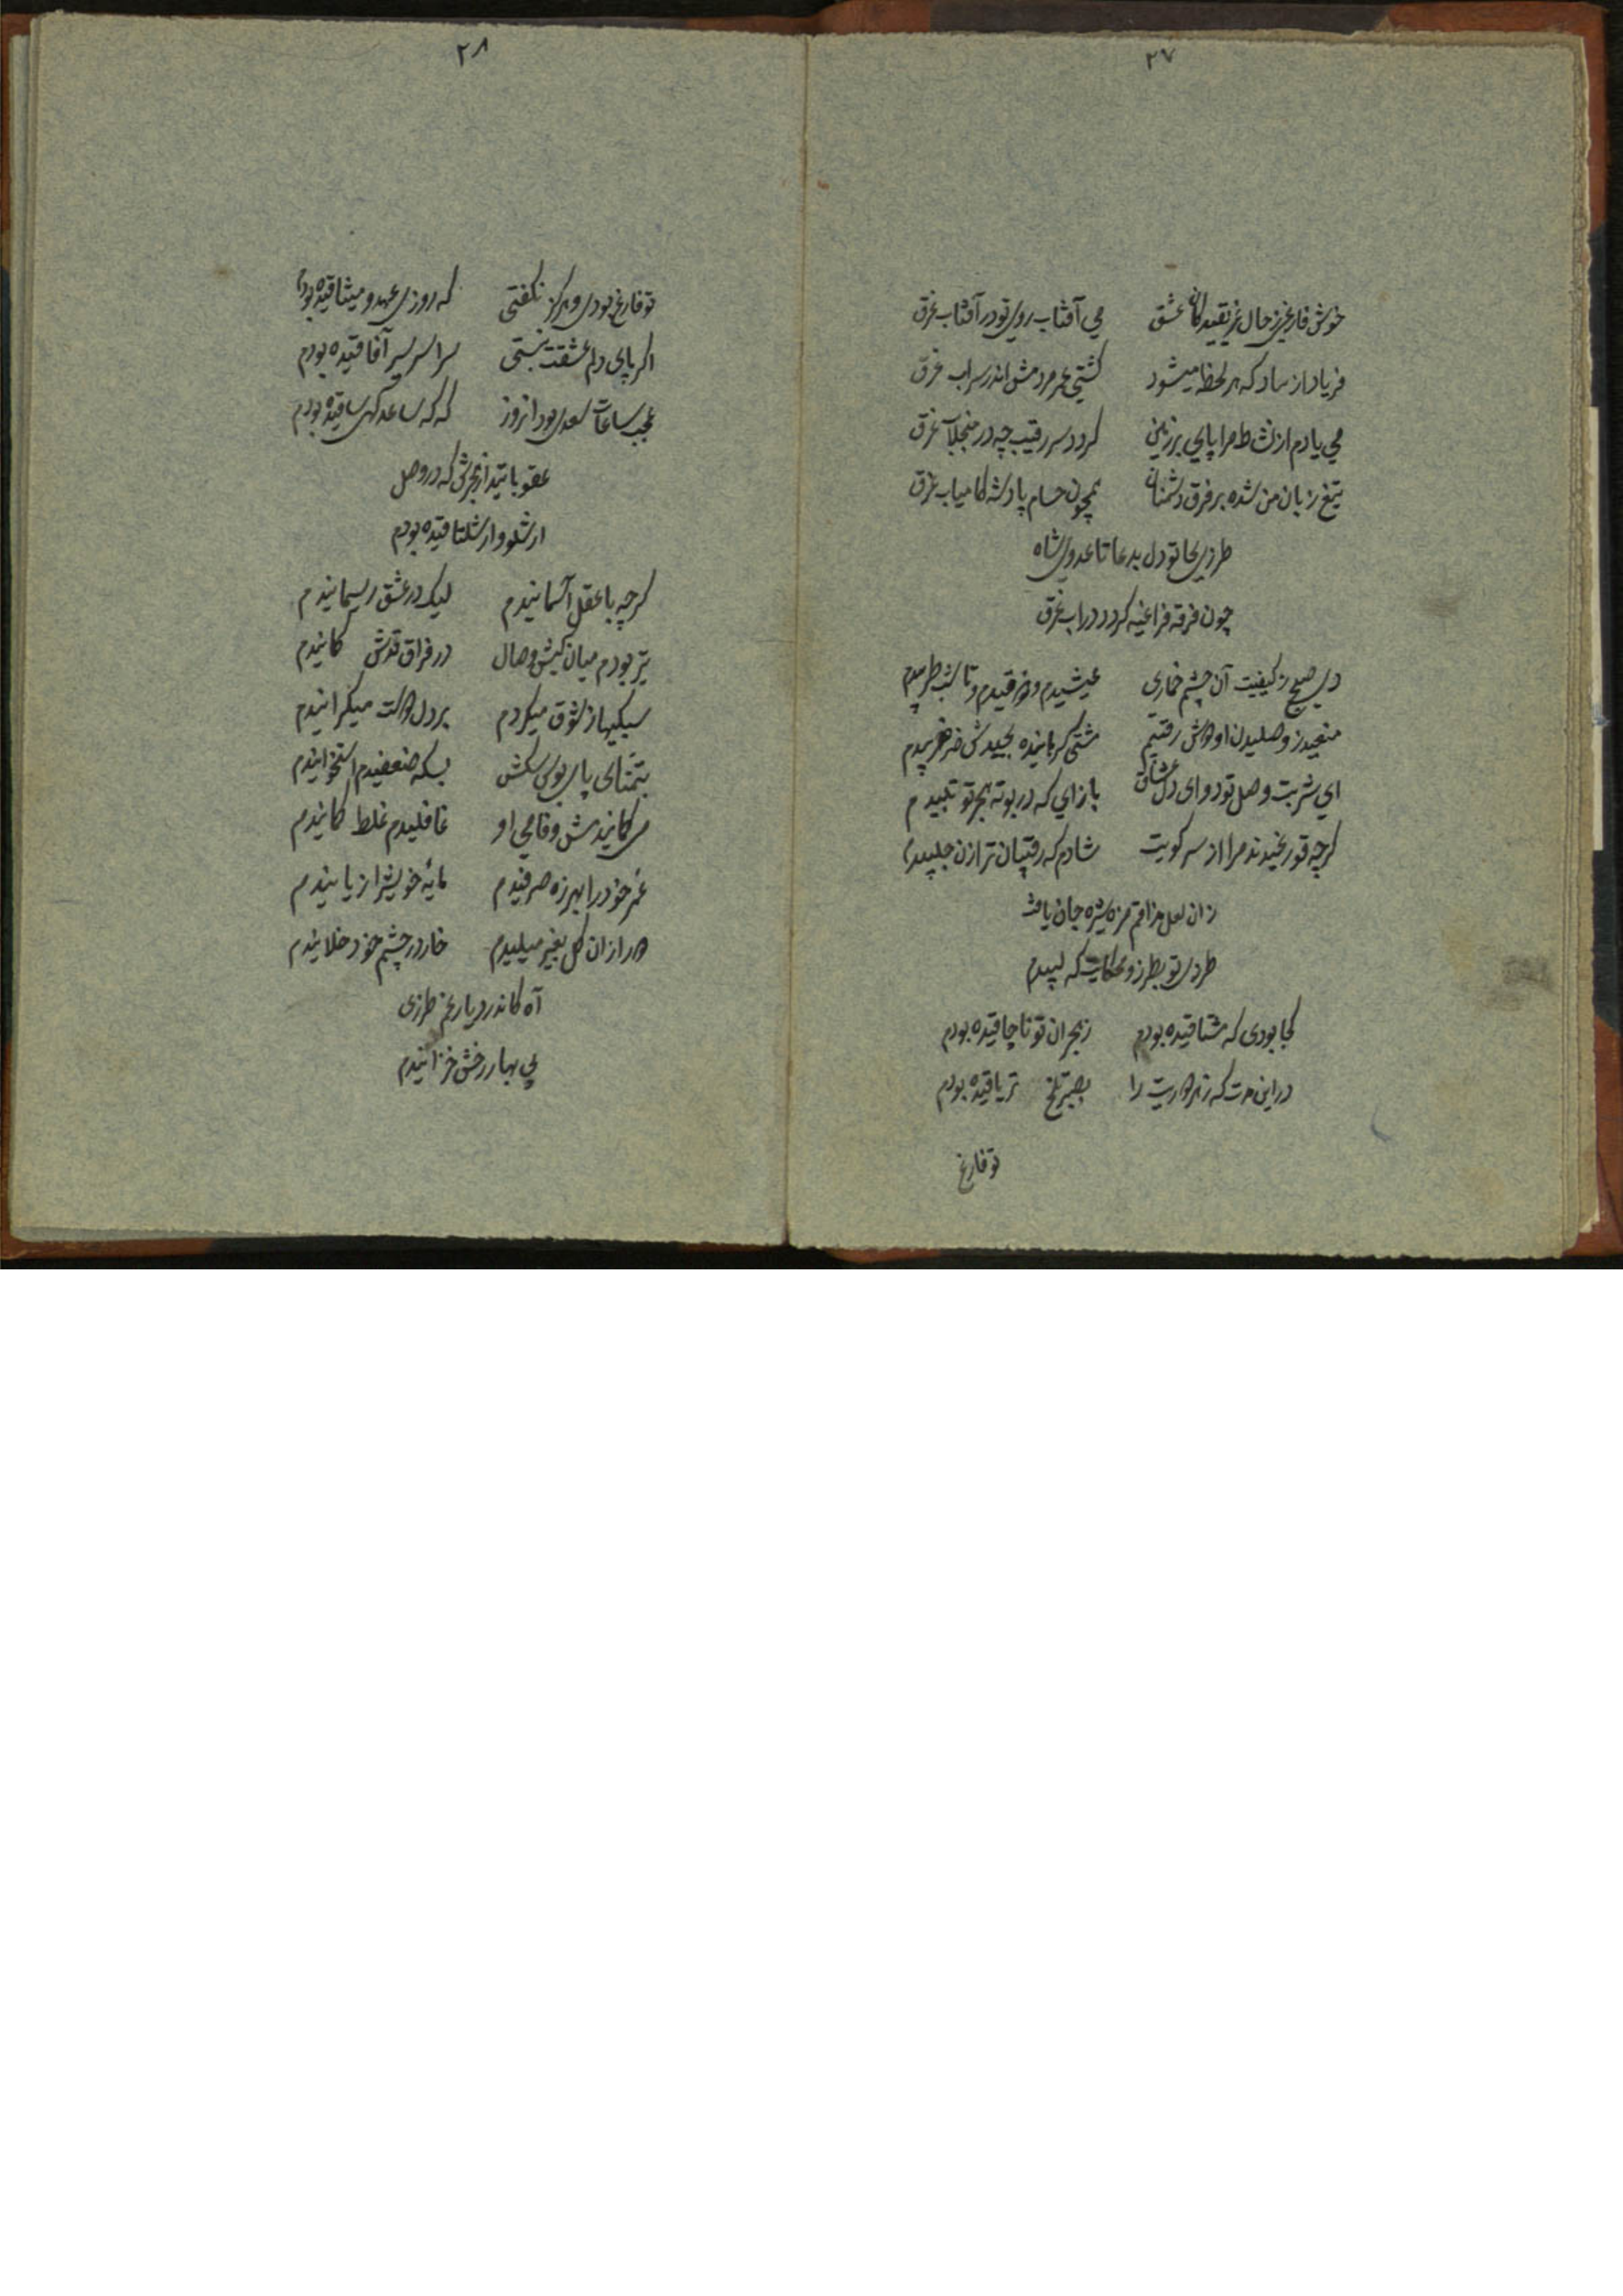 ۲۷
خوش فارغی ز حال غریقیدگان عشق می آفتاب روی تو در آفتاب غرق
فریاد از که هر لحظه میشود کشتی عمر مردمش اندر سراب غرق
می یادم از نشاط مرا پای بر زمین کردد سر رقیب چه در منجلآب غرق
تیغ زبان من شده بر فرق دشمنان همچون حسام پادشه کامیاب غرق
طرزی بجا تو دل بدعا تا عدوی شاه
چون فرقه فراعنه کردد در آب غرق
دی صبح ز کیفیت آن چشم خماری عیشیدم و ذوقیدم و تا شب طربیدم
منعید ز وصلیدن او هاش رقیبم مشتی
ای شربت وصل تو دوای دل عشاق باز ای که در بوته هجر تو تبیدم
کرچه قوریخیدند مرا از سر کویت شادم که رقیبان ترا زن جلبیدم
زان لعل جان یافت
طرزی تو بطرز و که لبیدم
کجا بودی که مشتاقیده بودم ز هجران تو ناچاقیده بودم
در این مدت که زهر دوریت را بصبر تلخ تریاقیده بودم
تو فارغ
۲۸
تو فارغ بودی و هرکز نکفتی که روزی عهد و میثاقیده بودم
اکر پای دلم عشقت نبستی سراسر سیر آفاقیده بودم
عجب ساعات سعدی بود انروز که که ساعد کهی ساقیده بودم
عقوباتید از هجرش که در وصل
ارشلو وارشلتاقیده بودم
کرچه با عقل آسمانیدم لیک در عشق ریسمانیدم
تیر بودم میان کیش وصال در فراق قدش کمانیدم
سبکیها ز شوق میکردم بر دل هات میکرانیدم
بتمنای پای بوس سکش بسکه ضعفیدم استخوانیدم
می کمانیدمش وفامی او غافلیدم غلط کمانیدم
عمر خود را بهرزه صرفیدم مایهٔ خویشرا زیانیدم
هر از ان کل بغیر میلیدم خار در چشم خود خلانیدم
آه کاندر دیار غم طرزی
بی بهار رخش خزانیدم